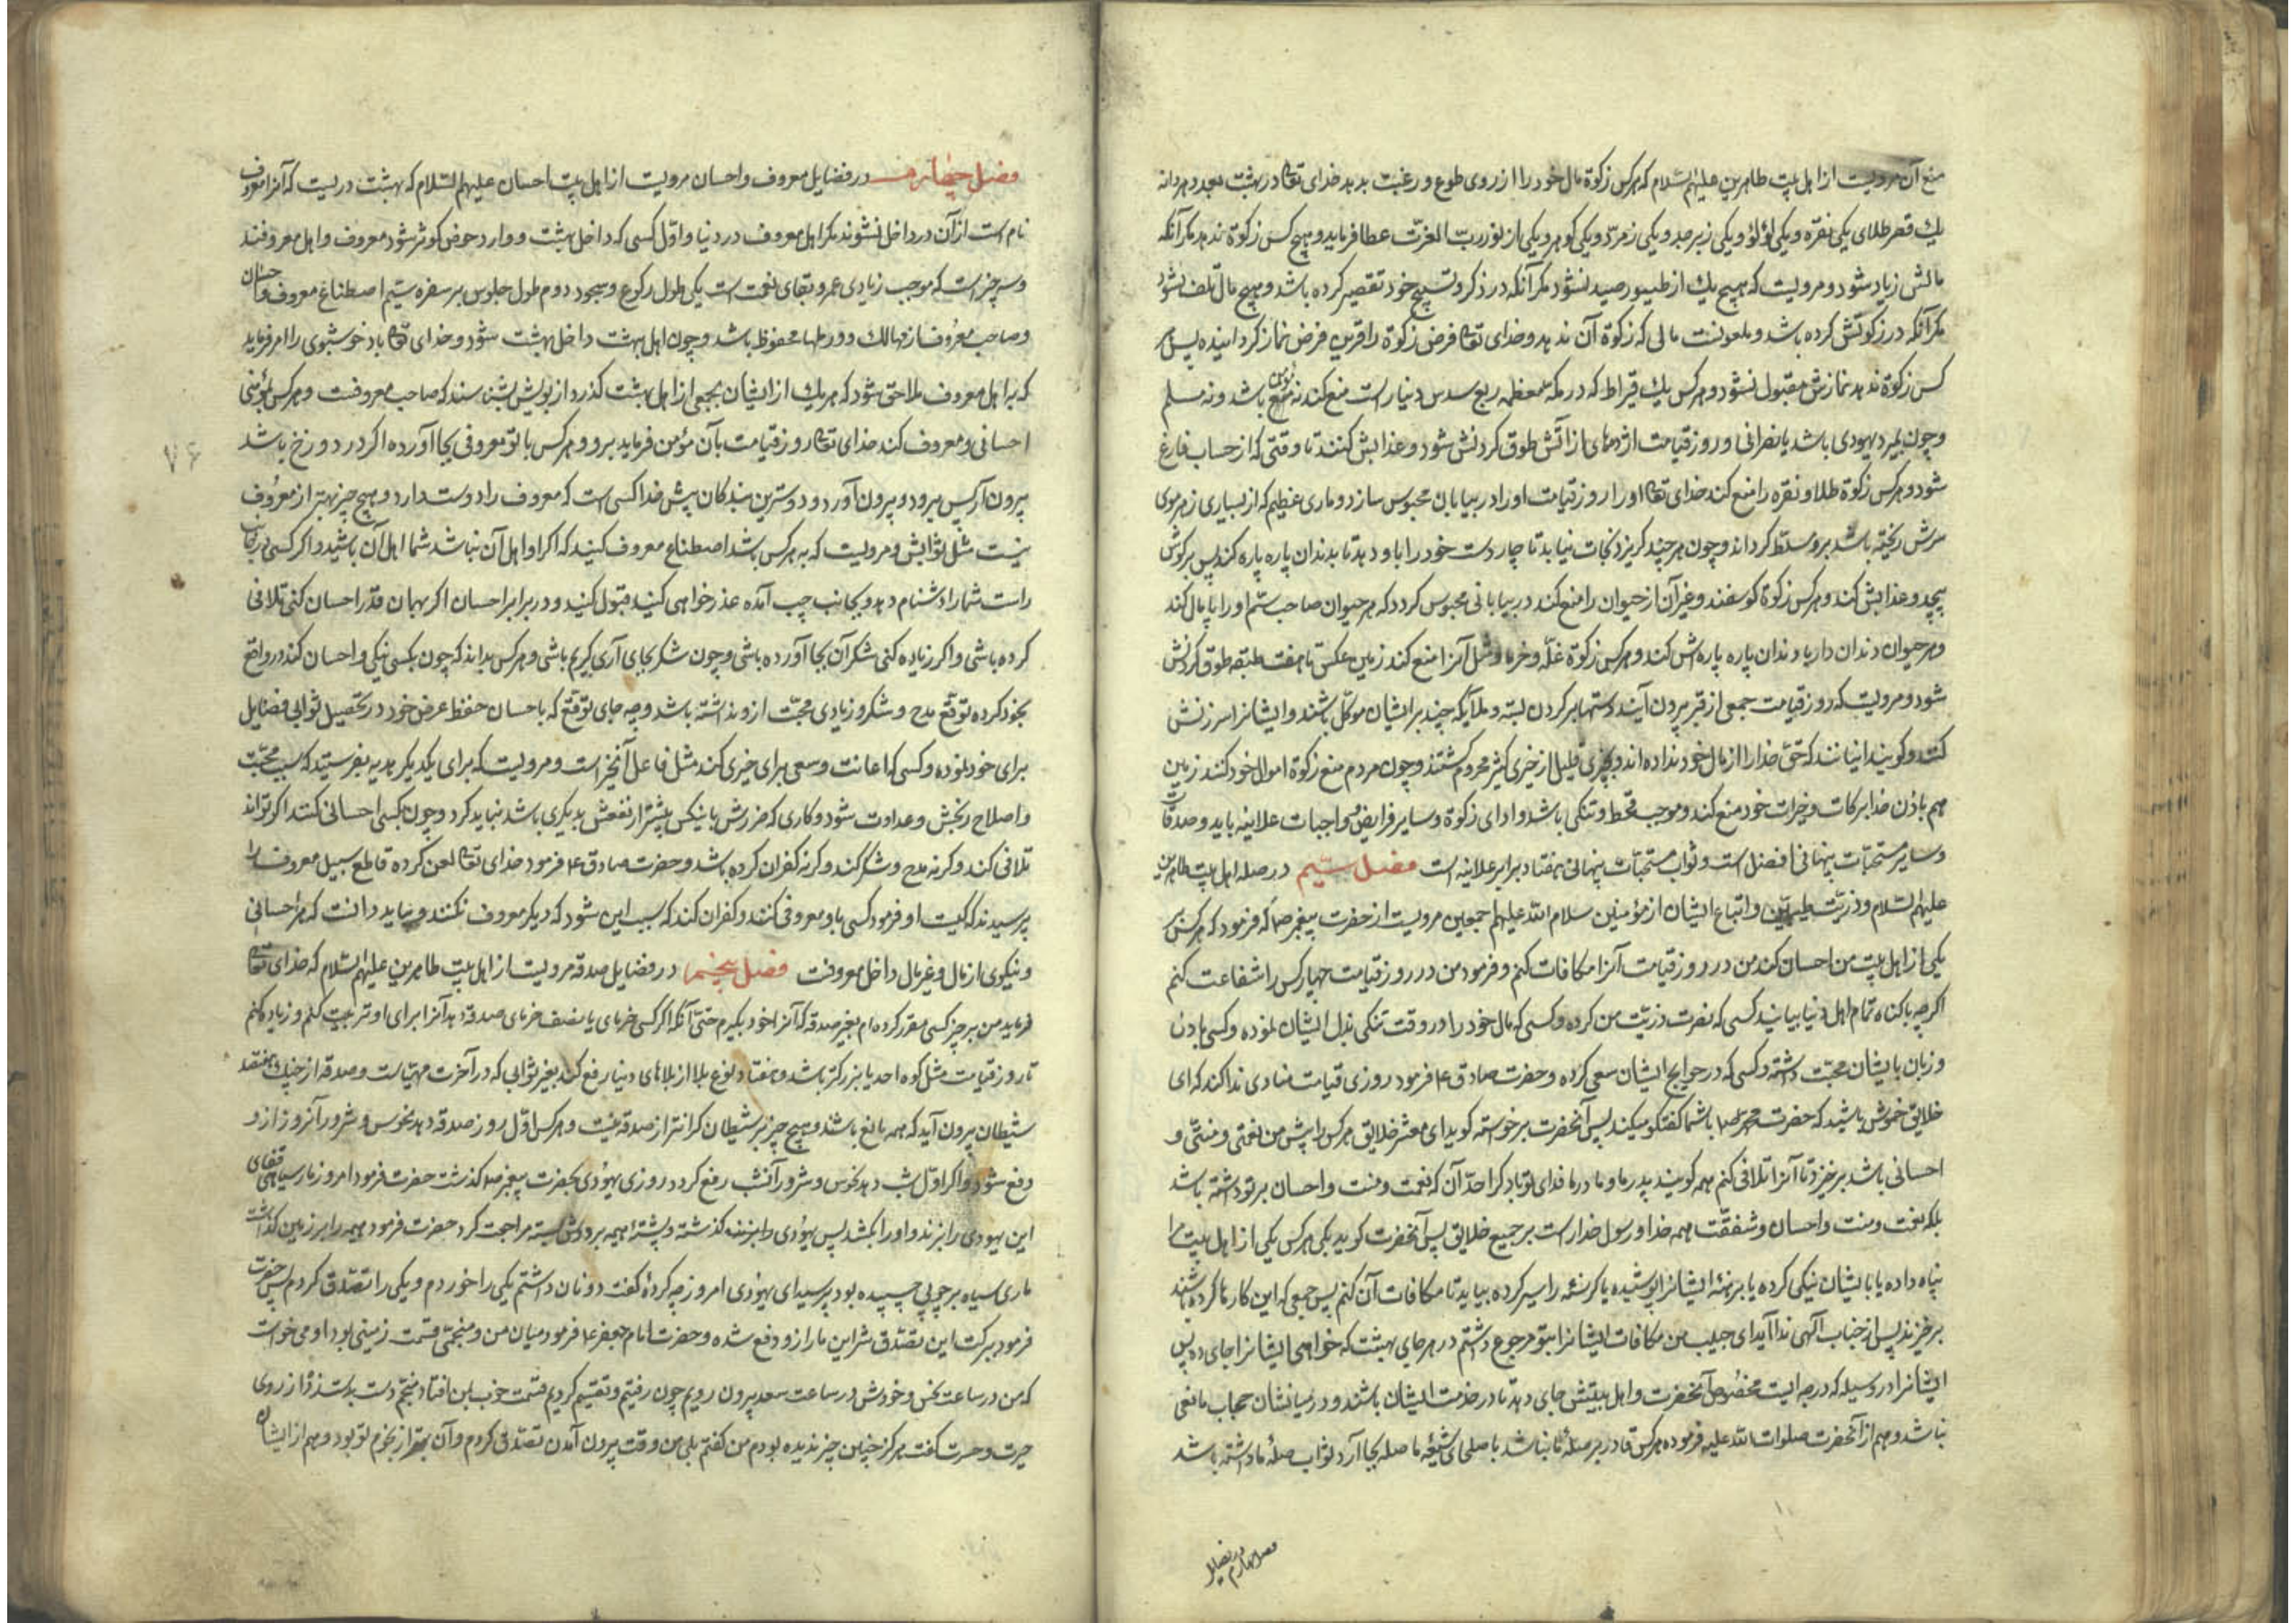 منع آن مرویست از اهل بیت طاهرین علیهم السلام که هرکس زکوة مال خود را از روی طوع و رغبت بدهد خدای تعا در بهشت بعدد هر دانه
یك قصر طلای یکی نقره و یکی لؤلؤ و یکی زبرجد و یکی زمرّد و یکی کوهر و یکی از نور ربّ العزت عطا فرماید و هیچ کس زکوة ندهد مکر آنکه
مالش زیاد شود و مرویست که هیچ یك از طیور صید نشود مکر آنکه در ذکر و تسبیح خود تقصیر کرده باشد و هیچ مال تلف نشود
مکر آنکه در زکوتش کرده باشد و ملعونست مالی که زکوة آن ندهد و خدای تعا فرض زکوة را قرین فرض نماز کردانیده پس هر
کس زکوة ندهد نمازش مقبول نشود و هرکس یك قیراط که در مکه معظمه ربع سدس دنیار است منع کند نه مؤمن باشد و نه مسلم
و چون بمیرد یهودی باشد یا نصرانی و روز قیامت اژدهای از آتش طوق کردنش شود و عذابش کنند تا وقتی که از حساب فارغ
شود و هرکس زکوة طلا و نقره را منع کند خدای تعا او را روز قیامت او را در بیابان محبوس سازد و ماری عظیم که از بسیاری زهر موی
سرش ریخته باشد برو مسلّط کرداند و چون هرچند کریزد نجات نیابد تا چار دست خود را باو دهد تا بدندان پاره پاره کند پس بر کوش
پیچد و عذابش کند و هرکس زکوة کوسفند و غیر آن از حیوان را منع کند در بیابانی محبوس کردد که هر حیوان صاحب ستم او را پایمال کند
و هر حیوان دندان دار با دندان پاره پاره اش کند و هرکس زکوة غلّه و خرما و مثل آنرا منع کند زمین عکس تا هفت طبقه طوق کردنش
شود و مرویست که روز قیامت جمعی از قبر بیرون آیند دستها بر کردن بسته و ملایکه چند بر ایشان موکّل باشند و ایشانرا سرزنش
کنند و کویند اینانند که حقّ خدا را از مال خود نداده اند و بچیزی قلیل از خیری کثیر محروم کشتند و چون مردم منع زکوة اموال خود کنند زمین
هم باذن خدا برکات و خیرات خود منع کند و موجب قحط و تنکی باشد و ادای زکوة و سایر فرایض و واجبات علانیه باید و صدقات
و سایر مستحبّات پنهانی افضل است و ثواب مستحبّات پنهانی هفتاد برابر علانیه است فصل سیّم در صله اهل بیت طاهرین
علیهم السلام و ذریّت طیبین و اتباع ایشان از مؤمنین سلام الله علیهم اجمعین مرویست از حضرت پیغمبر ص که فرمود که هرکس
یکی از اهل بیت من احسان کند من در روز قیامت آنرا مکافات کنم و فرمود من در روز قیامت چهار کس را شفاعت کنم
اکرچه باکناه تمام اهل دنیا بیایند کسی که نصرت ذریّت من کرده و کسی که مال خود را در وقت تنکی بذل ایشان نموده و کسی بادل
و زبان بایشان محبّت داشته و کسی که در حوایج ایشان سعی کرده و حضرت صادق ع فرمود روزی قیامت منادی ندا کند که ای
خلایق خموش باشید که حضرت محمد ص با شما کفتکو میکند پس آنحضرت برخواسته کوید ای معشر خلایق هرکس را پیش من نعمتی و منّتی و
احسانی باشد برخیزد تا آنرا تلافی کنم همه کویند پدر ما و مادر ما فدای تو باد کرا حدّ آن که نعمت و منت و احسان بر تو داشته باشد
بلکه نعمت و منت و احسان و شفقّت همه خدا و رسول خدا راست بر جمیع خلایق پس آنحضرت کوید بلی هرکس یکی از اهل بیت را
پناه داده یا بایشان نیکی کرده یا برهنهٔ ایشانرا پوشیده یا کرسنه را سیر کرده بیاید تا مکافات آن کنم پس جمعی که این کارها کرده باشند
برخیزند پس از جناب آلهی ندا آید ای حبیب من مکافات ایشانرا بتو مرجوع داشتم در هر جای بهشت که خواهی ایشانرا جای ده پس
ایشانرا در وسیله که درجه ایست مخصوص آنحضرت و اهل بیتش جای دهد تا در خدمت ایشان باشند و در میانشان حجاب مانعی
نباشد و هم از آنحضرت صلوات الله علیه فرموده هرکس قادر بر صلهٔ ما نباشد با صلحای شیعه ما صله بجا آرد ثواب صلهٔ ما داشته باشد
فصل چهارم در فضایل
فصل چهارم در فضایل معروف و احسان مرویست از اهل بیت احسان علیهم السلام که بهشت دریست که آنرا معروف
نام است از آن در داخل نشوند مکر اهل معروف در دنیا و اوّل کسی که داخل بهشت و وارد حوض کوثر شود معروف و اهل معروفند
و سه چیز است که موجب زیادی عمر و بقای نعمت است یکی طول رکوع و سجود دوم طول جلوس بر سفره سیّم اصطناع معروف و احسان
و صاحب معروف از مهالك دور طها محفوظ باشد و چون اهل بهشت داخل بهشت شود و خدای تعا باد خوشبوی را امر فرماید
که براهل معروف ملاحق شود که هریك از ایشان بجمعی از اهل بهشت کذرد از بویش بشناسند که صاحب معروفست و هرکس بمؤمنی
احسانی و معروف کند خدای تعا روز قیامت بآن مؤمن فرماید برو و هرکس با تو معروفی بجا آورده اکر در دوزخ باشد
بیرون آر پس برود و بیرون آورد و دوسترین بندکان پیش خدا کسی است که معروف را دوست دارد و هیچ چیز بهتر از معروف
نیست مثل ثوابش و مرویست که به هرکس باشد اصطناع معروف کنید که اکر او اهل آن نباشد شما اهل آن باشید و اکر کسی در جانب
راست شما را دشنام دهد و بجانب چپ آمده عذرخواهی کند قبول کنید و در برابر احسان اکر بهمان قدر احسان کنی تلافی
کرده باشی و اکر زیاده کنی شکر آن بجا آورده باشی و چون شکر بجای آری کریم باشی و هرکس بداند که چون بکسی نیکی و احسان کند در واقع
بخود کرده توقّع مدح و شکر و زیادی محبّت از و نداشته باشد و چه جای توقّع که باحسان حفظ عرض خود در تحصیل ثوابی فضایل
برای خود نموده و کسی که اعانت و سعی برای خیری کند مثل فاعل آنخیر است و مرویست که برای یکدیکر هدیه بفرستید که سبب محبّت
و اصلاح رنجش و عداوت شود و کاری که ضررش با ینکس بیشتر از نفعش بدیکری باشد نباید کرد و چون بکسی احسانی کنند اکر تواند
تلافی کند و کرنه مدح و شکر کند و کرنه کفران کرده باشد و حضرت صادق ع فرمود خدای تعا لعن کرده قاطع سبیل معروف را
پرسیدند که کیست او فرمود کسی باو معروفی کنند و کفران کند که سبب این شود که دیکر معروف نکنند و بباید دانست که هر احسانی
و نیکوی از مال و غیر مال داخل معروفست فصل پنجم در فضایل صدقه مرویست از اهل بیت طاهرین علیهم السلام که خدای تعا
فرماید من بر هرچیز کسی مقرر کرده ام بغیر صدقه که آنرا خود بکیرم حتّی آنکه اکر کسی خرمای یا نصف خرمای صدقه دهد آنرا برای او تربیت کنم و زیاد کنم
تا روز قیامت مثل کوه احد یا بزرکتر باشد و هفتاد نوع بلا از بلاهای دنیا رفع کند بغیر ثوابی که در آخرت مهیّاست و صدقه از چنك هفتصد
شیطان بیرون آید که همه مانع باشند و هیچ چیز بر شیطان کرانتر از صدقه نیست و هرکس اوّل روز صدقه دهد نحوس و شرور آنروز از و
دفع شود و اکر اوّل شب دهد نحوس و شرور آنشب رفع کردد روزی یهودی بحضرت پیغمبر ص کذشت حضرت فرمود امروز مار سیاهی قفای
این یهودی را بزند و او را بکشد پس یهودی کذشته و پشتهٔ هیمه بر دوش بسته مراجعت کرد حضرت فرمود هیمه را بر زمین کذاشت
ماری سیاه بر چوبی چسپیده بود پرسید ای یهودی امروز چه کردهٔ کفت دو نان داشتم یکی را خوردم و یکی را تصدّق کردم پس حضرت
فرمود ببرکت این تصدّق شر این مار از و دفع شده و حضرت امام جعفر ع فرمود میان من و منجمّی قسمت زمینی بود او می خواست
که من در ساعت نحس و خودش در ساعت سعد بیرون رویم چون رفتیم و تقسیم کردیم قسمت خوب بمن افتاد منجم دست بدست زد از روی
حیرت و حسرت کفت هرکز چنین چیز ندیده بودم من کفتم بلی من وقت بیرون آمدن تصدّق کردم و آن بهتر از نجوم تو بود و هم از ایشان
۷۶